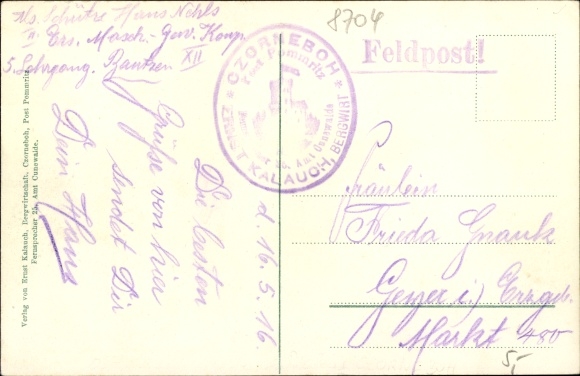 8704
Ms. Schütze Hans Nehls
II Ers. Masch. Gew. Komp. XII
5. Lehrgang. Bautzen
Feldpost!
CZORNEBOH
Post Pommritz
Amt Cunewalde
ERNST KALAUCH, BERGWIRT
d. 16. 5. 16
Die besten
Grüße von hier
sendet Dir
Dein Hans
Fräulein
Frieda Gnauk
Geyer i/ Erzgeb.
Markt 480
5,-
Verlag von Ernst Kalauch, Bergwirtschaft, Czorneboh, Post Pommritz,
Fernsprecher 25, Amt Cunewalde.